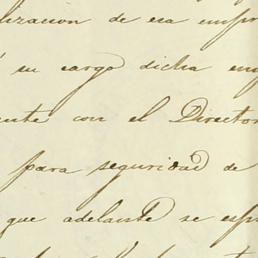 lizacion de esa empr
su cargo dicha em
ente con el Director
para seguridad de
que adelante se esp